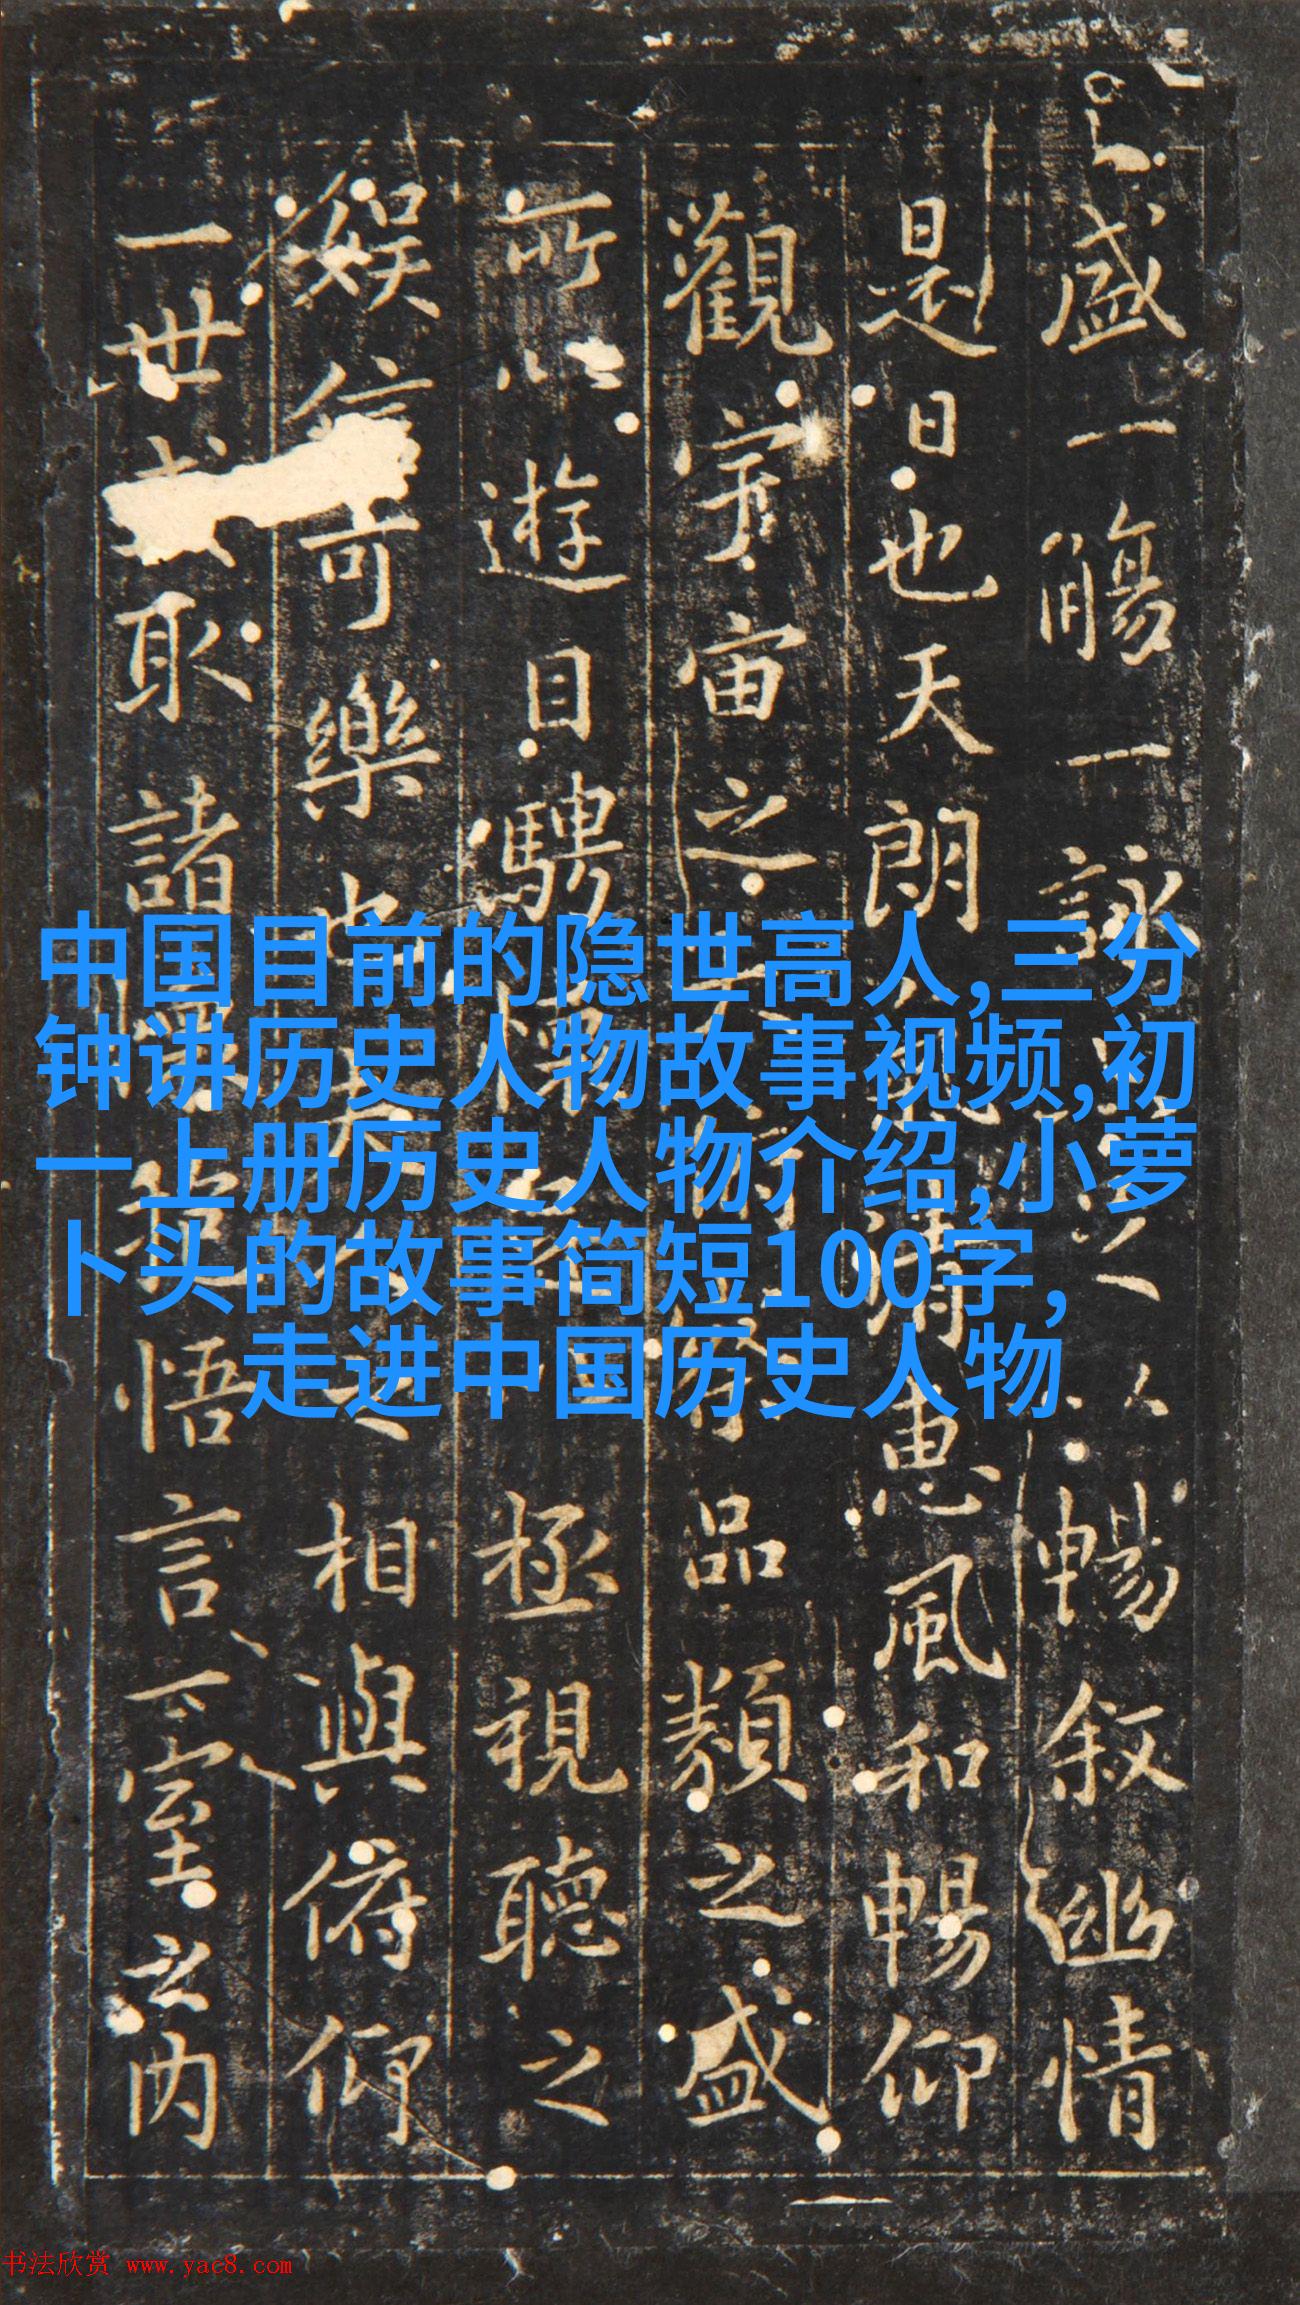 盛一觴一詠以暢叙幽情
是日也天朗清惠風和暢仰
觀宇宙之察品類之盛
所以遊目騁懷極視聽之
娛信可樂也夫相與俯仰
一世或取諸懷抱悟言一室之内
中国目前的隐世高人,三分
钟讲历史人物故事视频,初
一上册历史人物介绍,小萝
卜头的故事简短100字,
走进中国历史人物
书法欣赏 www.yac8.com